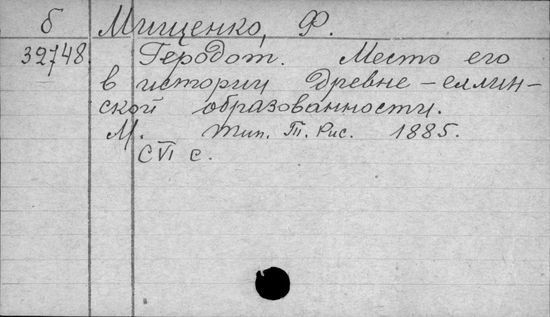 б Мищенко, Ф.
39748. Геродот. Место его
в истории древне-еллин-
ской образованности.
М. Тип. Т. Рис. 1885.
CVI с.